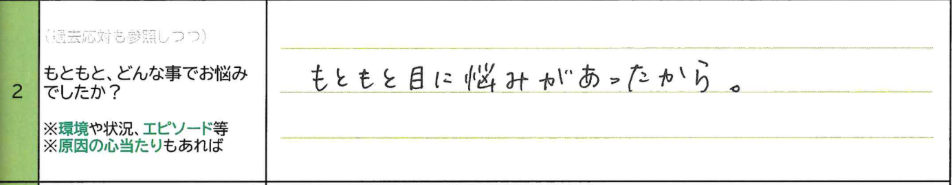 2
(過去応対も参照しつつ)
もともと、どんな事でお悩み
でしたか？
※環境や状況、エピソード等
※原因の心当たりもあれば
もともと目に悩みがあったから。